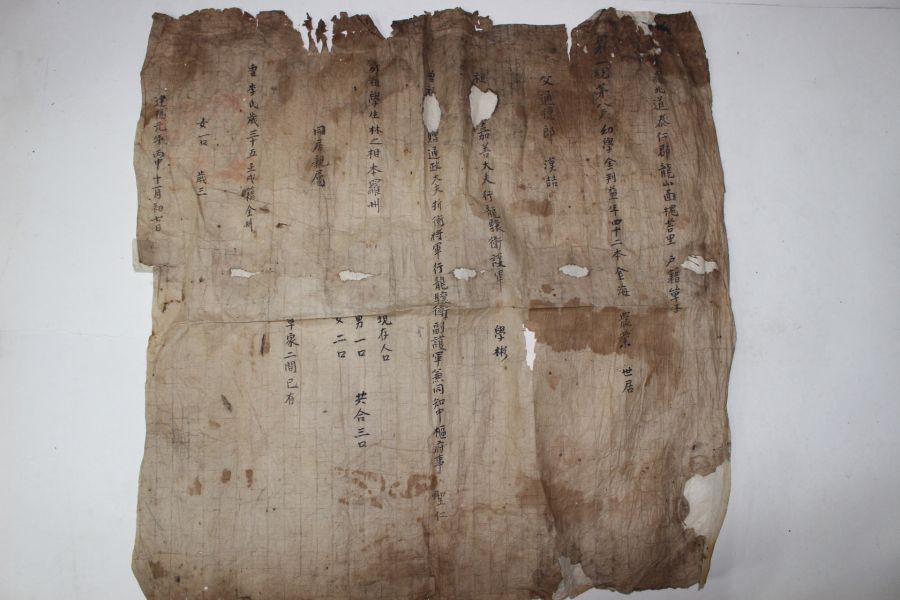 北道泰仁郡龍山面塊苔里 戶籍單子
第八戶 幼學金判益年四十二本金海 農業 世居
父通德郎 漢喆
祖 嘉善大夫行龍驤衛護軍 學彬
曾祖 贈通政大夫折衝將軍行龍驤衛副護軍兼同知中樞府事 聖仁
外祖學生林之相本羅州
現存人口
男一口 共合三口
女二口
同居親屬
草家二間已有
妻李氏歲三十五 籍全州
女一口 歲三
建陽元年丙申十一月初七日